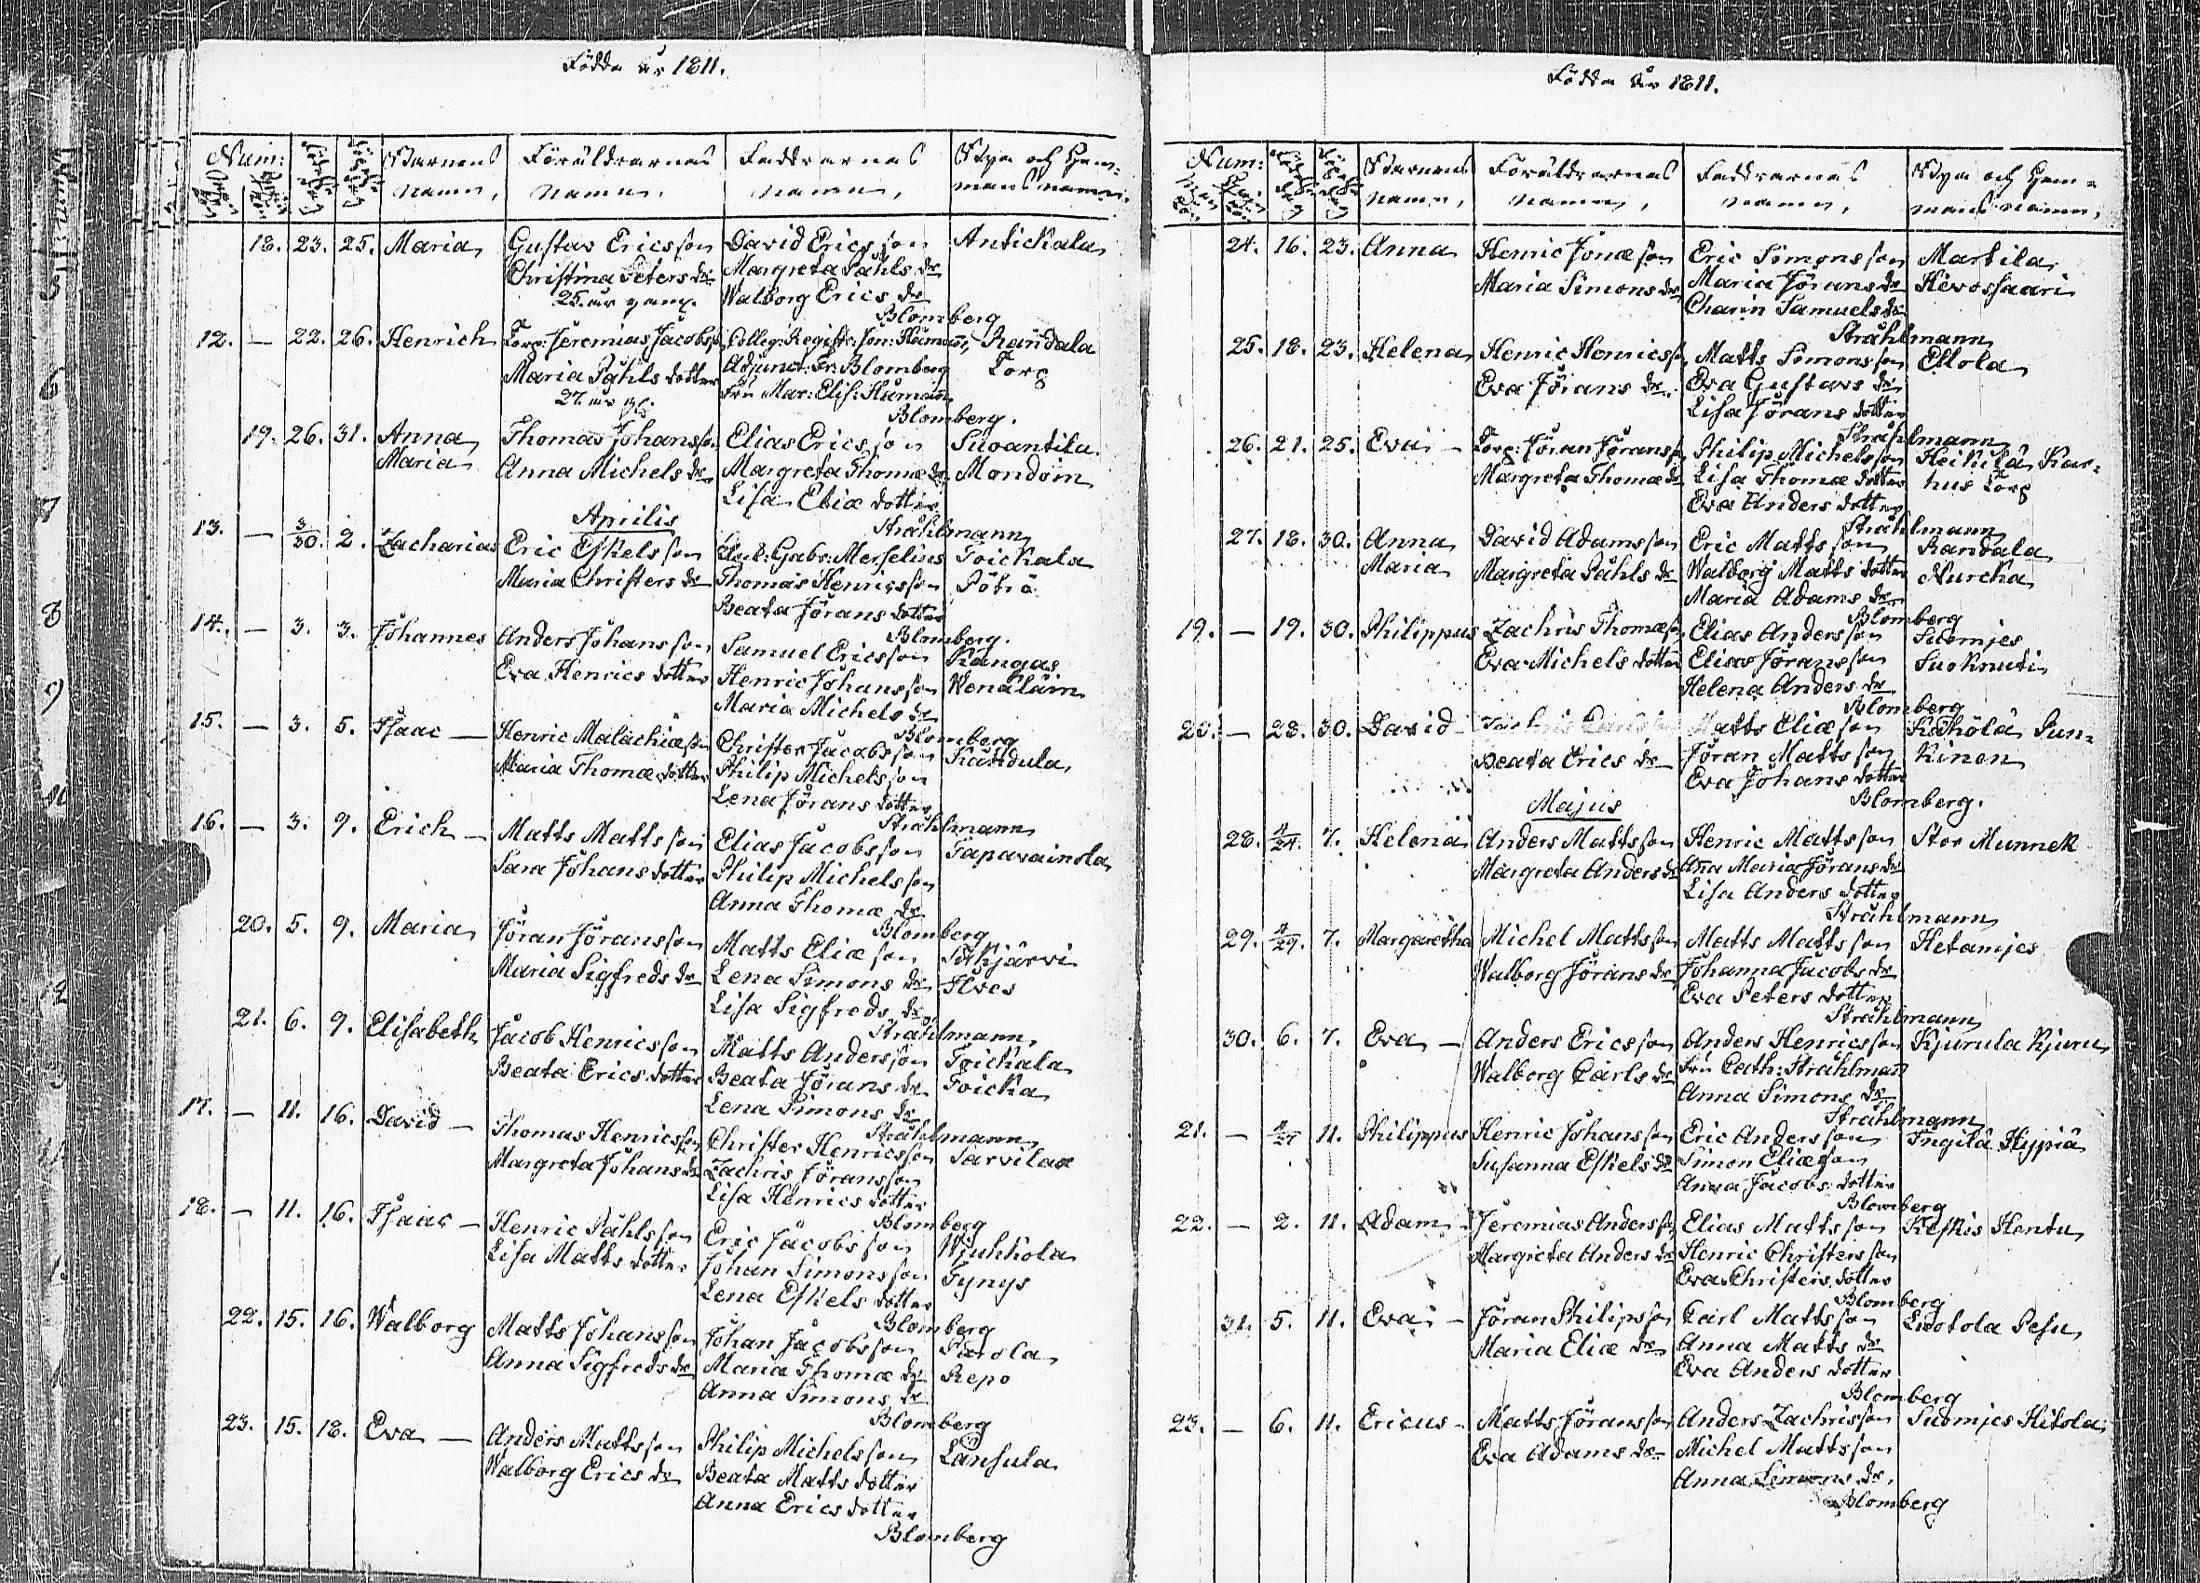 Födda år 1811.
Num: Barnens Föräldrarnas Faddrarnas Byn och Hem=
namn, namn, namn, mans namn.
18. 23. 25. Maria Gustav Ericsson David Ericsson Antickala
Christina Peters dr Margreta Påhls dr
25. år gam. Walborg Erics dr
Blomberg
12. — 22. 26. Henrich Torp: Jeremias Jacobss Colleg: Regist: Jon: Håmann, Kandala
Maria Påhls dotter Adjunct: Fr: Blomberg Torp
27. år gl. Fru Mar: Elis: Håmann
Blomberg.
19. 26. 31. Anna Thomas Johansson Elias Ericsson Suoantila
Maria Anna Michels dr Margreta Thomæ dr Mondoin
Lisa Eliæ dotter
Aprilis Stråhlmann
13. — 3/30. 2. Zacharias Eric Eskelsson Gabr: Merselius Toickala
Maria Christers dr Thomas Henricsson Pötrö
Beata Jörans dotter
Blomberg.
14. — 3. 3. Johannes Anders Johansson Samuel Ericsson Kangas
Eva Henrics dotter Henric Johansson Wenäläin
Maria Michels dr
Blomberg
15. — 3. 5. Isaac — Henric Malachiæson Christer Jacobsson Kandula
Maria Thomæ dotter Philip Michelsson
Lena Jörans dotter
Stråhlmann
16. — 3. 9. Erich — Matts Mattsson Elias Jacobsson Tapavainola
Sara Johans dotter Philip Michelsson
Anna Thomæ dr
Blomberg
20. 5. 9. Maria Jöran Jöransson Matts Eliæ son Sitkjärvi
Maria Sigfreds dr Lena Simons dr Ilves
Lisa Sigfreds dr
Stråhlmann
21. 6. 9. Elisabeth Jacob Henricsson Matts Andersson Toickala
Beata Erics dotter Beata Jörans dr Toicka
Lena Simons dr
Stråhlmann
17. — 11. 16. David — Thomas Henricsson Christer Henricsson Sarvilax
Margreta Johans dr Zachris Jöransson
Lisa Henrics dotter
Blomberg
18. — 11. 16. Isaac — Henric Påhlsson Eric Jacobsson Wjuhkola
Lisa Matts dotter Johan Simonsson Tynys
Lena Eskels dotter
Blomberg
22. 15. 16. Walborg Matts Johansson Johan Jacobsson Pärola
Anna Sigfreds dr Maria Thomæ dr Repo
Anna Simons dr
Blomberg
23. 15. 18. Eva — Anders Mattsson Philip Michelsson Länsula
Walborg Erics dr Beata Matts dotter
Anna Erics dotter
Blomberg
Födda år 1811.
Num: Barnens Föräldrarnas Faddrarnas Byn och Hem=
namn, namn, namn, mans namn,
24. 16. 23. Anna Henric Jonæson Eric Simonsson Martila
Maria Simons dr Maria Jörans dr Hevossaari
Charin Samuels dr
Stråhlmann
25. 18. 23. Helena Henric Henricsson Matts Simonsson Ellola
Eva Jörans dr. Eva Gustavs dr
Lisa Jörans dotter
Stråhlmann
26. 21. 25. Eva — Torp: Jöran Jöranss Philip Michelsson Heikilä Kar=
Margreta Thomæ dr Lisa Thomæ dotter hus Torp
Eva Anders dotter
Stråhlmann
27. 18. 30. Anna David Adamsson Eric Mattsson Kandala
Maria Margreta Påhls dr Walborg Matts dotter Nurcka
Maria Adams dr
Blomberg
19. — 19. 30. Philippus Zachris Thomæs Elias Andersson Suomjes
Eva Michels dotter Elias Jöransson Suo Knuti
Helena Anders dr
Blomberg
20. — 28. 30. David Matts Eliæson Kähölä Pun=
Beata Erics dr Jöran Mattsson Kinen
Eva Johans dotter
Blomberg.
Majus
28. 4/24. 7. Helena Anders Mattsson Henric Mattsson Stor Munnek
Margreta Anders dr Ana Maria Jörans dr
Lisa Anders dotter
Stråhlmann
29. 4/29. 7. Margaretha Michel Mattsson Matts Mattsson Hetamjes
Walborg Jörans dr Johanna Jacobs dr
Eva Peters dotter
Stråhlmann
30. 6. 7. Eva — Anders Ericsson Anders Henricsson Kjurula Kjuru
Walborg Carls dr Fru Cath: Stråhlman
Anna Simons dr
Stråhlmann
21. — 11. Philippus Henric Johansson Eric Andersson Ingilä Hypiä
Susanna Eskels dr Simon Eliæson
Anna Jacobs dotter
Blomberg
22. — 2. 11. Adam Jeremias Anderss Elias Mattsson Keskis Hentu
Margreta Anders dr Henric Christersson
Eva Christers dotter
Blomberg
31. 5. 11. Eva — Jöran Philipsson Carl Mattsson Luotola Pesu
Maria Eliæ dr Anna Matts dr
Eva Anders dotter
Blomberg
23. — 6. 11. Ericus — Matts Jöransson Anders Zachrisson Suomjes Hitola
Eva Adams dr Michel Mattsson
Anna Simons dr,
Blomberg